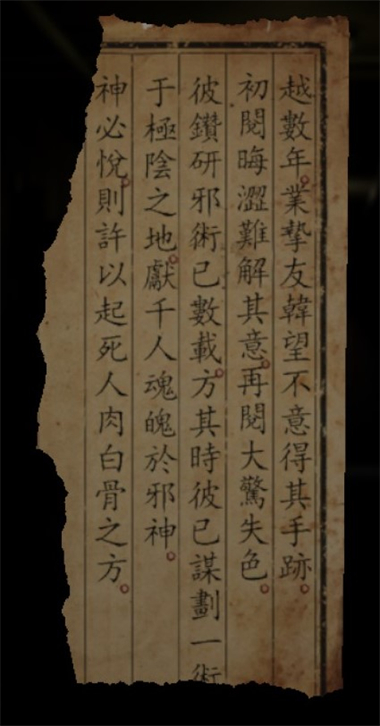 越數年。業摯友韓望不意得其手跡。
初閱晦澀難解其意。再閱大驚失色。
彼鑽研邪術已數載。方其時彼已謀劃一術
于極陰之地。獻千人魂魄於邪神。
神必悅。則許以起死人肉白骨之方。